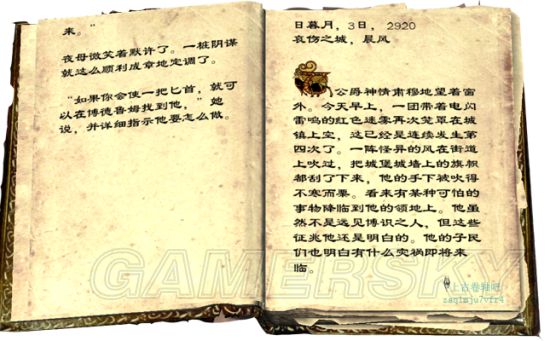 来。”
夜母微笑着默许了。一桩阴谋
就这么顺利成章地定调了。
“如果你会使一把匕首，就可
以在博德鲁姆找到他，”她
说，并详细指示他要怎么做。
日暮月，3日，2920
哀伤之城，晨风
公爵神情肃穆地望着窗
外。今天早上，一团带着电闪
雷鸣的红色迷雾再次笼罩在城
镇上空，这已经是连续发生第
四次了。一阵怪异的风在街道
上吹过，把城堡城墙上的旗帜
都刮了下来，他的手下被吹得
不寒而栗。看来有某种可怕的
事物降临到他的领地上。他虽
然不是远见博识之人，但这些
征兆他还是明白的。他的子民
们也明白有什么灾祸即将来
临。
GAMERSKY
上古卷轴吧
zaqimju7vfr4